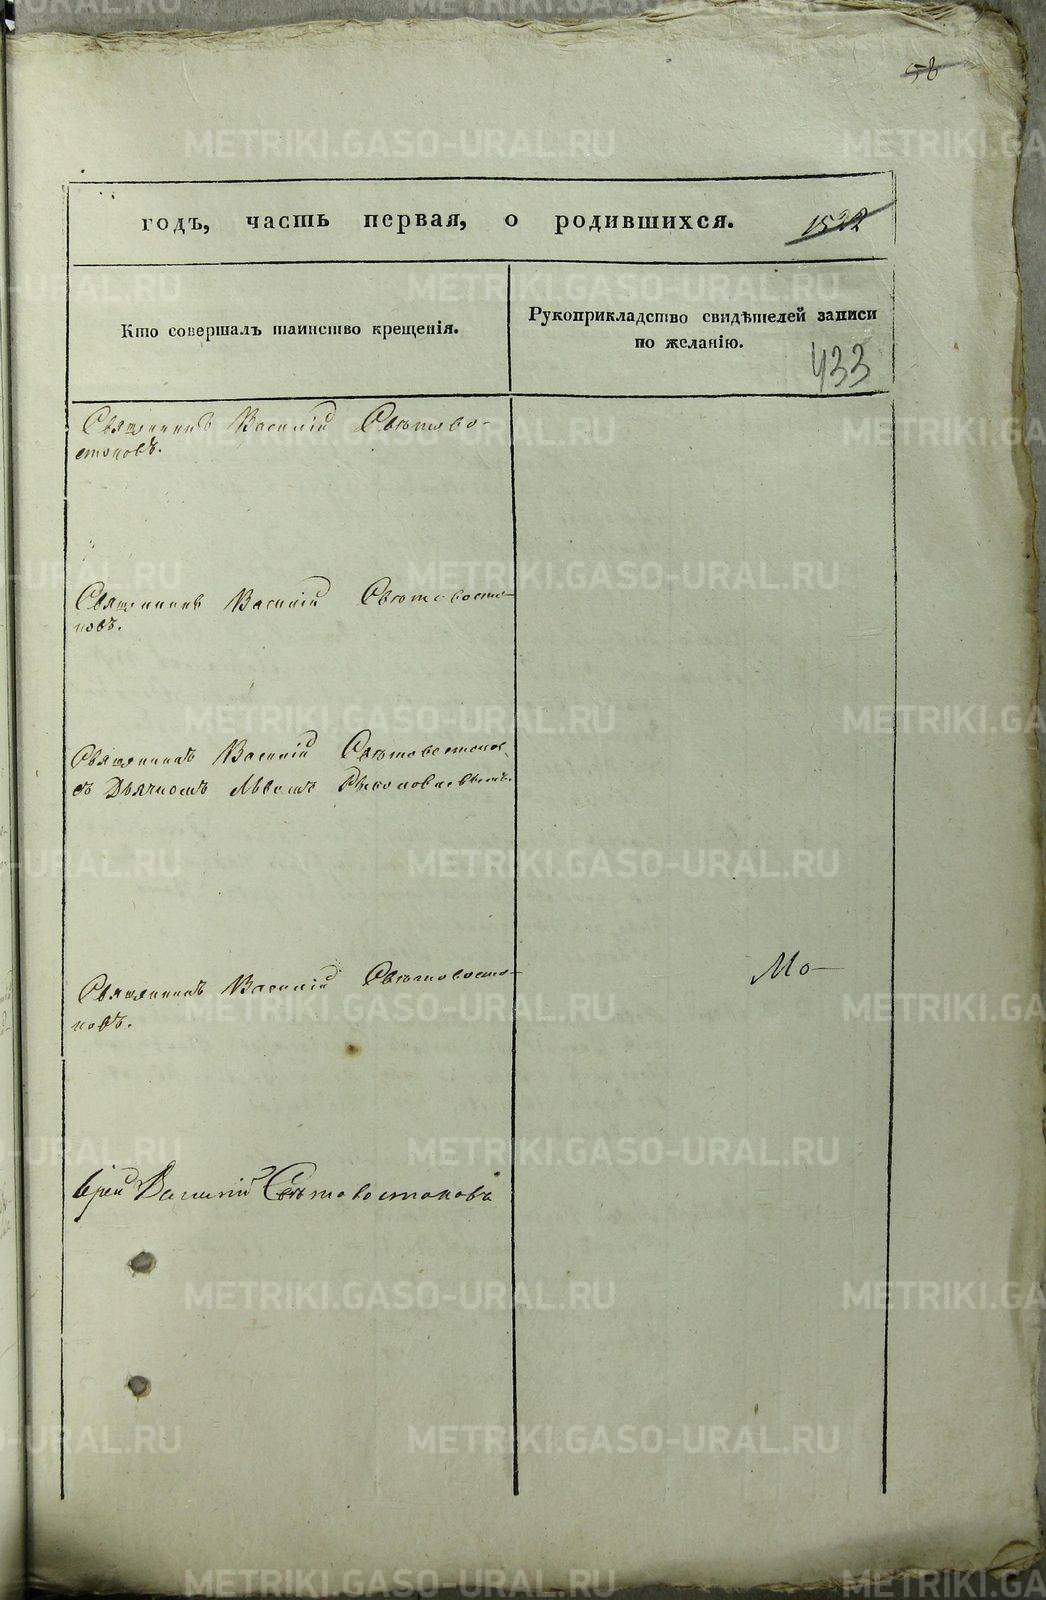 58
годъ, часть первая, о родившихся. 1522
Кто совершалъ таинство крещенія.
Рукоприкладство свидѣтелей записи
по желанію.
433
Священникъ Василій Свѣтово-
стоковъ.
Священникъ Василій Свѣтовосто-
ковъ.
Священникъ Василій Свѣтовостоков
съ Дьячкомъ Львомъ
Священникъ Василій Свѣтовосто-
ковъ.
Мо-
Іерей Василій Свѣтовостоковъ
METRIKI.GASO-URAL.RU